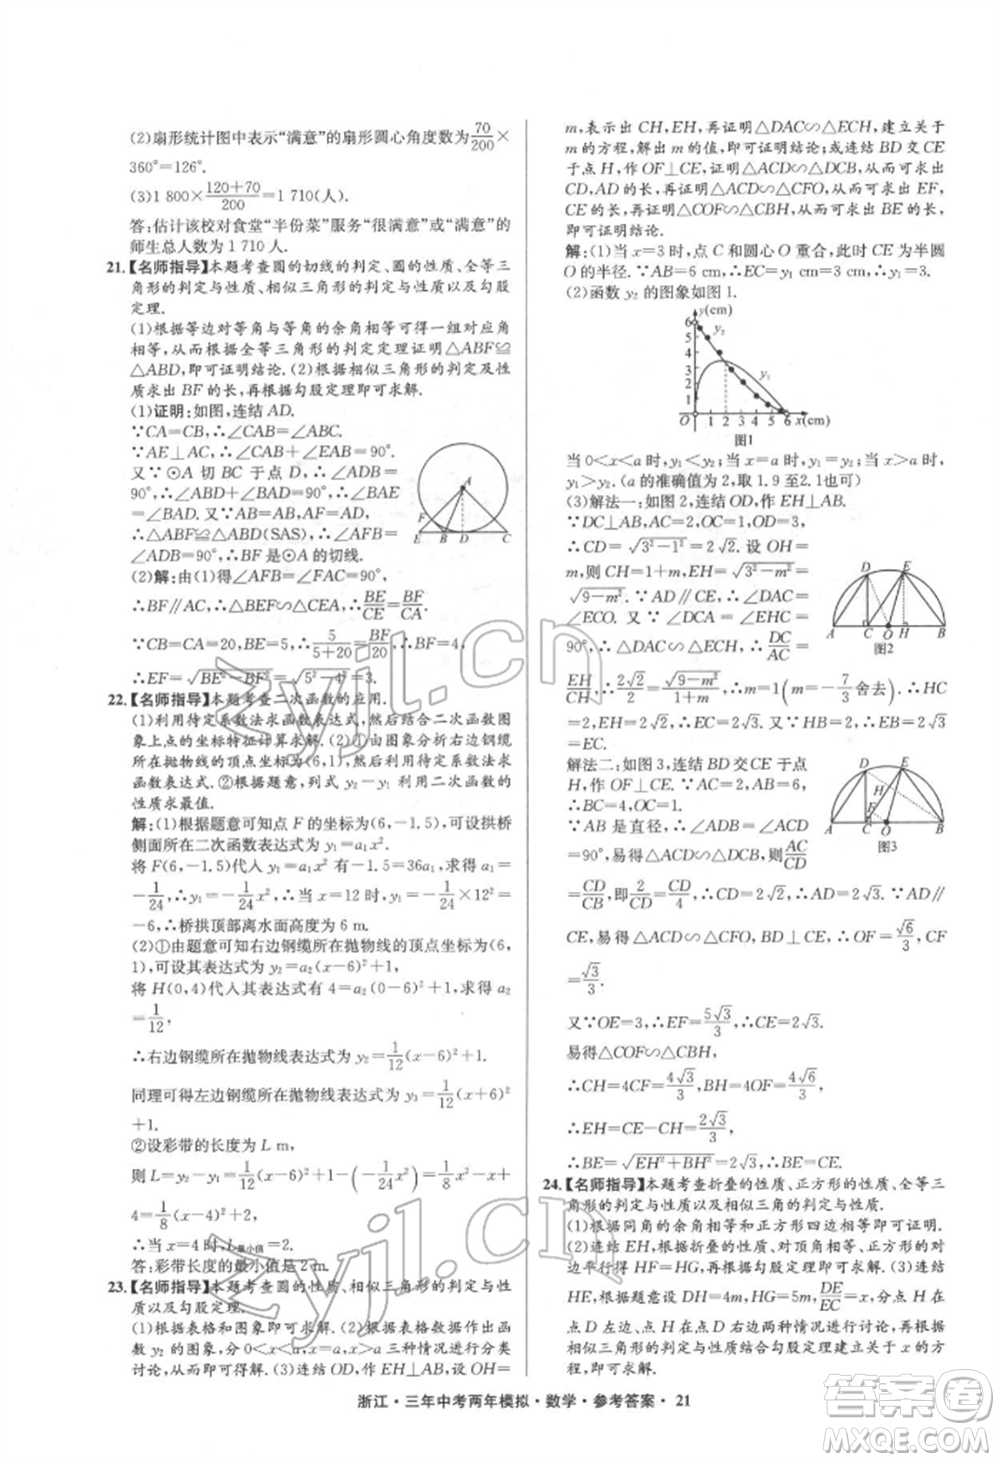 (2)扇形统计图中表示“满意”的扇形圆心角度数为70/200×
360°=126°.
(3)1 800×(120+70)/200=1 710(人).
答:估计该校对食堂“半份菜”服务“很满意”或“满意”的
师生总人数为1 710人.
21.【名师指导】本题考查圆的切线的判定、圆的性质、全等三
角形的判定与性质、相似三角形的判定与性质以及勾股
定理.
(1)根据等边对等角与等角的余角相等可得一组对应角
相等,从而根据全等三角形的判定定理证明△ABF≌
△ABD,即可证明结论.(2)根据相似三角形的判定与性质
求出BF的长,再根据勾股定理即可求解.
(1)证明:如图,连结AD.
∵CA=CB,∴∠CAB=∠ABC.
∵AE⊥AC,∴∠CAB+∠EAB=90°.
又∵⊙A切BC于点D,∴∠ADB=
90°,∴∠ABD+∠BAD=90°,
∴∠BAD=∠BAF.又∵AB=AB,
AD=AF,∴△ABF≌△ABD(SAS),∴∠AFB=
∠ADB=90°,∴BF是⊙A的切线.
(2)解:由(1)得∠AFB=∠FAC=90°,
∴BF∥AC,∴△BEF∽△CEA,∴BE/CE=BF/CA.
∵CB=CA=20,BE=5,∴5/(5+20)=BF/20,∴BF=4,
∴EF=√(BE²−BF²)=√(5²−4²)=3.
22.【名师指导】本题考查二次函数的应用.
(1)利用待定系数法求函数表达式,然后结合二次函数图
象上点的坐标特征计算求解.(2)①由图象分析右边钢缆
所在抛物线的顶点坐标为(6,1),然后利用待定系数法求
函数表达式.②根据题意,列式y₂−y₁利用二次函数的
性质求最值.
解:(1)根据题意可知点F的坐标为(6,−1.5),可设拱桥
侧面所在二次函数表达式为y₁=a₁x².
将F(6,−1.5)代人y₁=a₁x²有−1.5=36a₁,求得a₁=
−1/24,∴y₁=−1/24x².当x=12时,y₁=−1/24×12²=
−6,∴桥拱顶部离水面高度为6 m.
(2)①由题意可知右边钢缆所在抛物线的顶点坐标为(6,
1),可设其表达式为y₂=a₂(x−6)²+1,
将H(0,4)代入其表达式有4=a₂(0−6)²+1,求得a₂=
1/12,
∴右边钢缆所在抛物线表达式为y₂=1/12(x−6)²+1.
同理可得左边钢缆所在抛物线表达式为y₃=1/12(x+6)²
+1.
②设彩带的长度为L m,
则L=y₂−y₁=1/12(x−6)²+1−(−1/24x²)=1/8x²−x+
4=1/8(x−4)²+2,
∴当x=4时,L最小值=2.
答:彩带长度的最小值是2 m.
23.【名师指导】本题考查圆的性质、相似三角形的判定与性
质以及勾股定理.
(1)根据表格和图象即可求解.(2)根据表格数据画出y₂
的图象,分0<x<a,x=a,a<x<6三种情况讨论,即可
求解.(3)连结OD,根据勾股定理求出CD,作EH⊥AB,设OH=
m,表示出CH,EH,再证明△DAC∽△ECH,建立关于
m的方程,解出m的值,即可证明结论.或者连结BD交CE
于点H,作OF⊥CE,证明△ADC∽△DCB,即可求出
CD,AD的长,再证明△DAC∽△CFO,即可求出EF,
CE,再证明△COF∽△CBH,即可求出BE的长,从而
可证明结论.
解:(1)当x=3时,点C和圆心O重合,此时CE为半圆
O的半径.∵AB=6 cm,∴CE=y₁ cm=3 cm,∴y₁=3.
(2)函数y₂的图象如图1.
y(cm)
6
5
4
3
2
1
O
1 2 3 4 5 6 x(cm)
y₂
y₁
图1
当0<x<a时,y₁<y₂;当x=a时,y₁=y₂;当a<x<6时,
y₁>y₂.(a的准确值为2,取1.9至2.1也可)
(3)解法一:如图2,连结OD,作EH⊥AB.
∵DC⊥AB,OC=OA−AC=1,OD=3,
∴CD=√(3²−1²)=2√2.设OH=
m,则CH=1+m,EH=√(3²−m²)=
√(9−m²).∵AD∥CE,∴∠DAC=
∠ECH.又∵∠DCA=∠EHC=
90°,∴△DAC∽△ECH,∴DC/AC=
EH/CH,∴2√2/2=√(9−m²)/(1+m),∴m=1(m=−7/3舍去).∴HC=
2,EH=2√2,∴CE=2√3.又∵HB=2,∴EB=2√3
=EC.
A C O H B D E
图2
解法二:如图3,连结BD交CE于点
H,作OF⊥CE于点F.
∵AC=2,∴CB=4,CO=1.
∵AB是直径,∴∠ADB=∠DCA
=90°,易得△ADC∽△DCB,∴AC/CD=
CD/CB,即2/CD=CD/4,∴CD=2√2,∴AD=2√3.∵AD∥
CE,易得△DAC∽△CFO,BD⊥CE,∴OF=√6/3,CF=
√3/3.
A C O B D E H F
图3
又∵OE=3,∴EF=5√3/3,∴CE=2√3.
易得△COF∽△CBH,
∴CH=4CF=4√3/3,BH=4OF=4√6/3,
∴EH=CE−CH=2√3/3,
∴BE=√(EH²+BH²)=2√3=CE.
24.【名师指导】本题考查折叠的性质、正方形的性质、全等三
角形的判定与性质以及相似三角的判定与性质.
(1)根据同角的余角相等和正方形四边相等即可证明.
(2)连结EF,根据折叠的性质及正方形的对
边平行得HF=HE即可证明.(3)根据DE/EC=4/5,分点H在
点D左边、点H在点D右边两种情况结合勾股定理和
相似三角形的判定与性质分类讨论即可.
浙江·三年中考两年模拟·数学·参考答案·21
zyjl.cn
zyjl.cn
答案圈
MXQE.COM